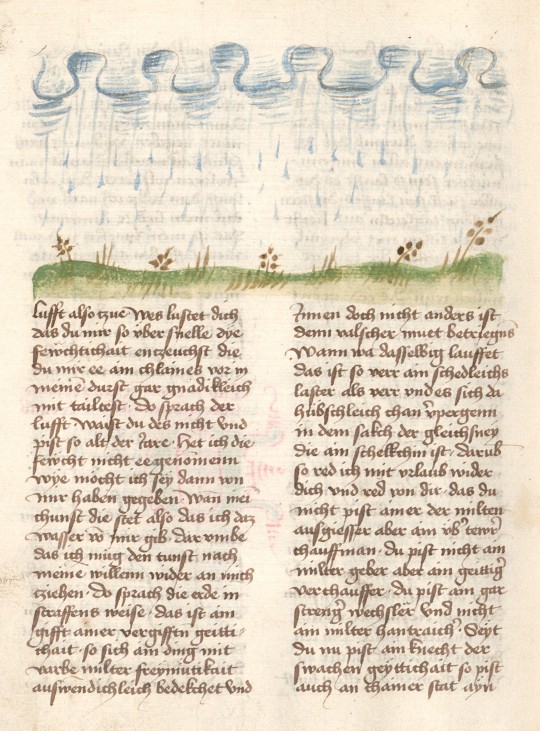 lufft also tzue wes lustet dich
das du mir so vber snelle dye
fewchtichait enczeuchst die
du mir ee am chlaines vor in
meine durst gar gnädikleich
mit tailtest · do sprach der
lufft waist du des nicht vnd
pist so alt der Jare · Het ich die
fewcht nicht ee genomenn
wye möcht ich sey dann von
mir haben gegeben · wan mei
chunst die stet also das ich daz
wasser vō mir gib · dar vmbe
das ich müg den tunst nach
meine willenn wider an mich
tziehen · do sprach die erde in
straffens weise · das ist ain
gifft ainer vergifftn geitti
chait · so sich ain ding mit
varbe milter freymutikait
auswendichleich bedekchet vnd
Innen doch nicht anders ist
denn valscher muet betriegns
Wann wa dasselbig lauffet
das ist so verr am schedleichs
laster als verr vnd es sich da
hubschleich chan vpergenn
in dem sakch der gleichsney
die am schelkchin ist · darub
so red ich mit vrlaub wider
dich vnd red von dir · das du
nicht pist ainer der milten
ausgiesser aber am vbˢ tewrˢ
chauffman · du pist nicht am
milter geber aber am geittigˢ
verchauffer · du pist am gar
strengˢ wechsler vnd nicht
am milter hantraichˢ · Seyt
du nu pist am knecht der
swachen geyttichait so pist
auch an chainer stat ayn